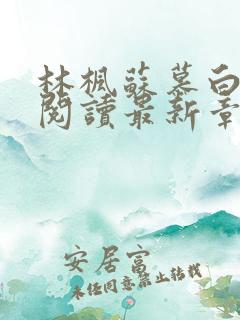 林楓蘇慕白
閱讀最新章
安居富
未经同意禁止转载